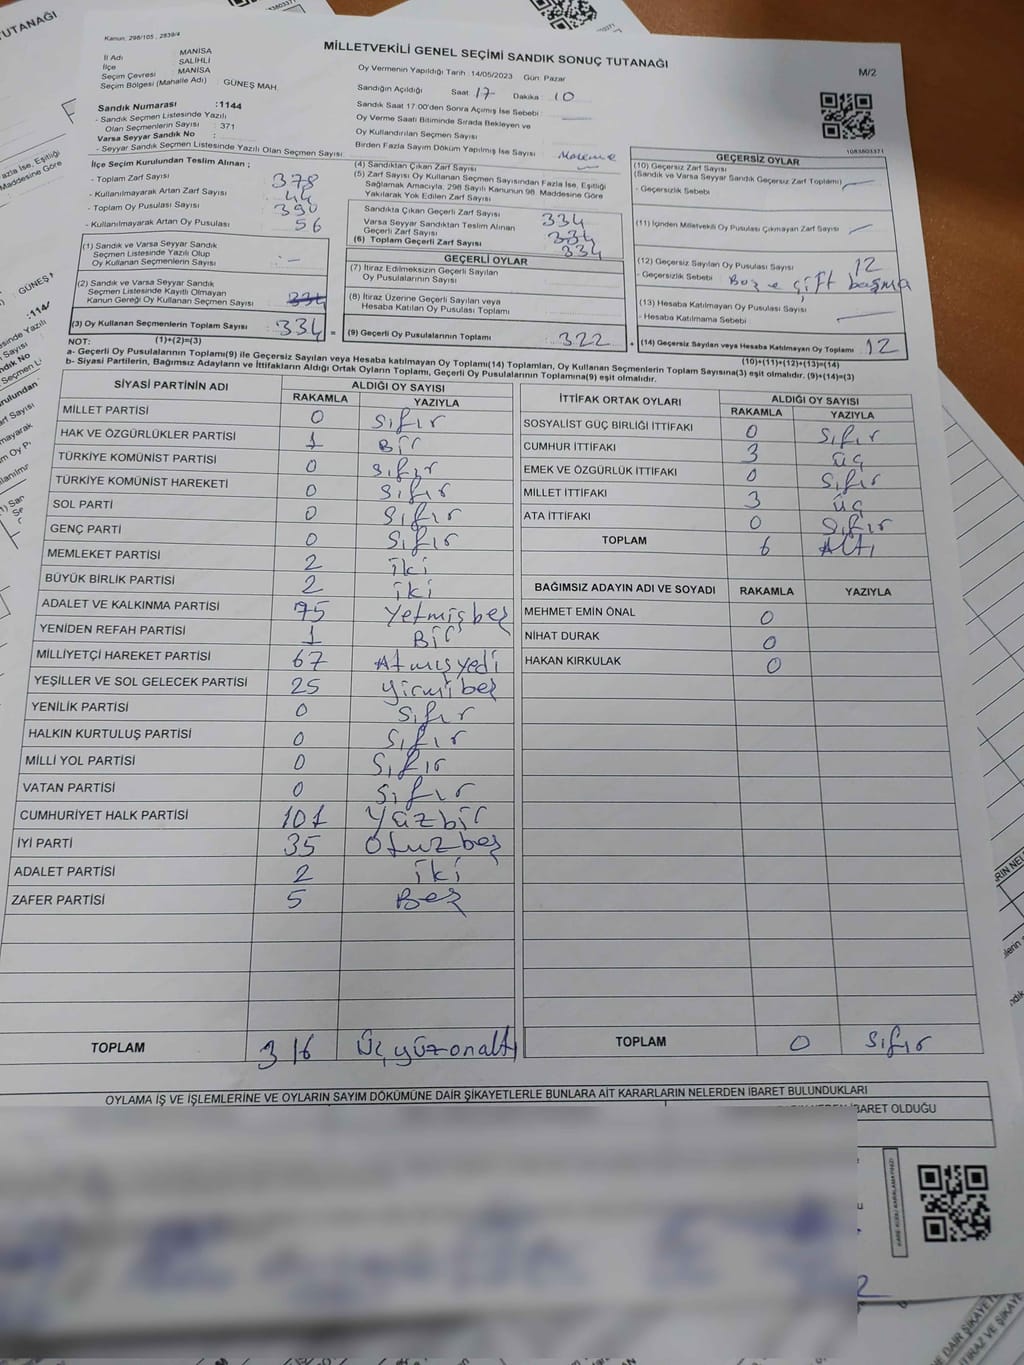 Kanun; 298/105 , 2839/4
MİLLETVEKİLİ GENEL SEÇİMİ SANDIK SONUÇ TUTANAĞI
M/2
İl Adı : MANİSA
İlçe : SALİHLİ
Seçim Çevresi : MANİSA
Seçim Bölgesi (Mahalle Adı) : GÜNEŞ MAH.
Sandık Numarası :1144
- Sandık Seçmen Listesinde Yazılı
Olan Seçmenlerin Sayısı : 371
Varsa Seyyar Sandık No :
- Seyyar Sandık Seçmen Listesinde Yazılı Olan Seçmen Sayısı:
Oy Vermenin Yapıldığı Tarih :14/05/2023 Gün: Pazar
Sandığın Açıldığı Saat : 17- Dakika : 10
Sandık Saat 17:00'den Sonra Açmış İse Sebebi :
Oy Verme Saati Bitiminde Sırada Bekleyen ve
Oy Kullandırılan Seçmen Sayısı :
Birden Fazla Sayım Döküm Yapılmış İse Sayısı :
1083803371
İlçe Seçim Kurulundan Teslim Alınan ;
- Toplam Zarf Sayısı : 378
- Kullanılmayarak Artan Zarf Sayısı : 44
- Toplam Oy Pusulası Sayısı : 390
- Kullanılmayarak Artan Oy Pusulası : 56
(1) Sandık ve Varsa Seyyar Sandık
Seçmen Listesinde Yazılı Olup
Oy Kullanan Seçmenlerin Sayısı : -
(2) Sandık ve Varsa Seyyar Sandık
Seçmen Listesinde Kayıtlı Olmayan
Kanun Gereği Oy Kullanan Seçmen Sayısı : 334
(3) Oy Kullanan Seçmenlerin Toplam Sayısı : 334 =
(4) Sandıktan Çıkan Zarf Sayısı :
(5) Zarf Sayısı Oy Kullanan Seçmen Sayısından Fazla İse, Eşitliği
Sağlamak Amacıyla, 298 Sayılı Kanunun 98. Maddesine Göre
Yakılarak Yok Edilen Zarf Sayısı :
Sandıkta Çıkan Geçerli Zarf Sayısı : 334
Varsa Seyyar Sandıktan Teslim Alınan
Geçerli Zarf Sayısı : 334
(6) Toplam Geçerli Zarf Sayısı : 334
GEÇERLİ OYLAR
(7) İtiraz Edilmeksizin Geçerli Sayılan
Oy Pusulalarının Sayısı :
(8) İtiraz Üzerine Geçerli Sayılan veya
Hesaba Katılan Oy Pusulaları Toplamı :
(9) Geçerli Oy Pusulalarının Toplamı : 322 +
GEÇERSİZ OYLAR
(10) Geçersiz Zarf Sayısı
(Sandık ve Varsa Seyyar Sandık Geçersiz Zarf Toplamı) :
- Geçersizlik Sebebi :
(11) İçinden Milletvekili Oy Pusulası Çıkmayan Zarf Sayısı :
(12) Geçersiz Sayılan Oy Pusulası Sayısı : 12
- Geçersizlik Sebebi : Boş ve çift basma
(13) Hesaba Katılmayan Oy Pusulası Sayısı :
- Hesaba Katılmama Sebebi :
(14) Geçersiz Sayılan veya Hesaba Katılmayan Oy Toplamı : 12
NOT: (1)+(2)=(3)
(10)+(11)+(12)+(13)=(14)
a- Geçerli Oy Pusulalarının Toplamı(9) ile Geçersiz Sayılan veya Hesaba katılmayan Oy Toplamı(14) Toplamları, Oy Kullanan Seçmenlerin Toplam Sayısına(3) eşit olmalıdır. (9)+(14)=(3)
b- Siyasi Partilerin, Bağımsız Adayların ve İttifakların Aldığı Ortak Oyların Toplamı, Geçerli Oy Pusulalarının Toplamına(9) eşit olmalıdır.
SİYASİ PARTİNİN ADI ALDIĞI OY SAYISI
RAKAMLA YAZIYLA
MİLLET PARTİSİ 0 Sıfır
HAK VE ÖZGÜRLÜKLER PARTİSİ 1 Bir
TÜRKİYE KOMÜNİST PARTİSİ 0 Sıfır
TÜRKİYE KOMÜNİST HAREKETİ 0 Sıfır
SOL PARTİ 0 Sıfır
GENÇ PARTİ 0 Sıfır
MEMLEKET PARTİSİ 2 iki
BÜYÜK BİRLİK PARTİSİ 2 iki
ADALET VE KALKINMA PARTİSİ 75 Yetmişbeş
YENİDEN REFAH PARTİSİ 1 Bir
MİLLİYETÇİ HAREKET PARTİSİ 67 Atmışyedi
YEŞİLLER VE SOL GELECEK PARTİSİ 25 Yirmibeş
YENİLİK PARTİSİ 0 Sıfır
HALKIN KURTULUŞ PARTİSİ 0 Sıfır
MİLLİ YOL PARTİSİ 0 Sıfır
VATAN PARTİSİ 0 Sıfır
CUMHURİYET HALK PARTİSİ 101 Yüzbir
İYİ PARTİ 35 Otuzbeş
ADALET PARTİSİ 2 iki
ZAFER PARTİSİ 5 Beş
TOPLAM 316 Üçyüzonaltı
İTTİFAK ORTAK OYLARI ALDIĞI OY SAYISI
RAKAMLA YAZIYLA
SOSYALİST GÜÇ BİRLİĞİ İTTİFAKI 0 Sıfır
CUMHUR İTTİFAKI 3 üç
EMEK VE ÖZGÜRLÜK İTTİFAKI 0 Sıfır
MİLLET İTTİFAKI 3 üç
ATA İTTİFAKI 0 Sıfır
TOPLAM 6 Altı
BAĞIMSIZ ADAYIN ADI VE SOYADI RAKAMLA YAZIYLA
MEHMET EMİN ÖNAL 0
NİHAT DURAK 0
HAKAN KIRKULAK 0
TOPLAM 0 Sıfır
OYLAMA İŞ VE İŞLEMLERİNE VE OYLARIN SAYIM DÖKÜMÜNE DAİR ŞİKAYETLERLE BUNLARA AİT KARARLARIN NELERDEN İBARET BULUNDUKLARI
İBARET OLDUĞU